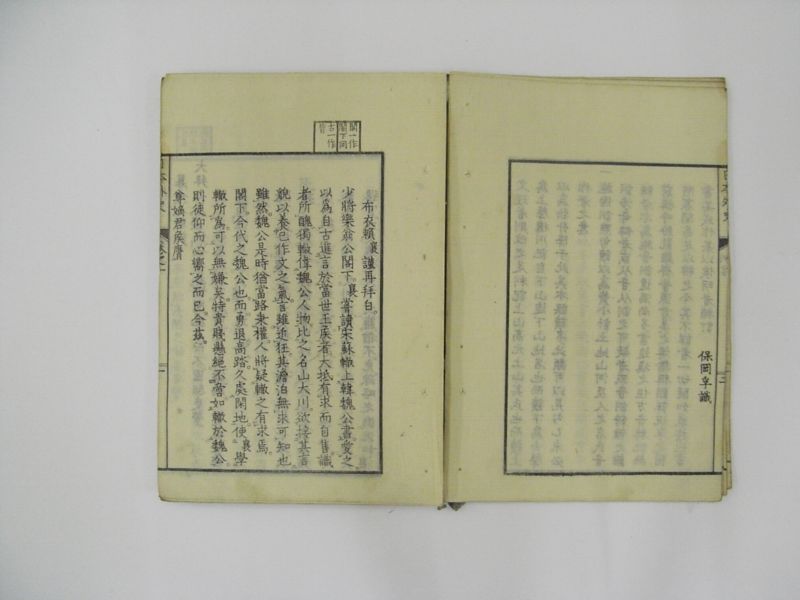 保岡孚識
閣一作
閣下同
古一作
昔
布衣頼襄謹再拜白
少將樂翁公閣下。襄嘗讀宋蘇轍上韓魏公書。愛之
以爲自古進言於當世王侯者。大抵有求而自售。識
者所醜。獨轍偉魏公人物。比之名山大川。欲接其言
貌以養己作文之氣。言雖近狂。其澹泊無求可知也
雖然魏公是時猶當路秉權。人將疑轍之有求焉。
閣下今代之魏公也。而勇退高踏。久處閑地。使襄學
轍所爲。可以無嫌矣。特貴賤懸絕。不啻如轍於魏公
則徒仰而心嚮之而已。今茲。
尊嫡君侯膺